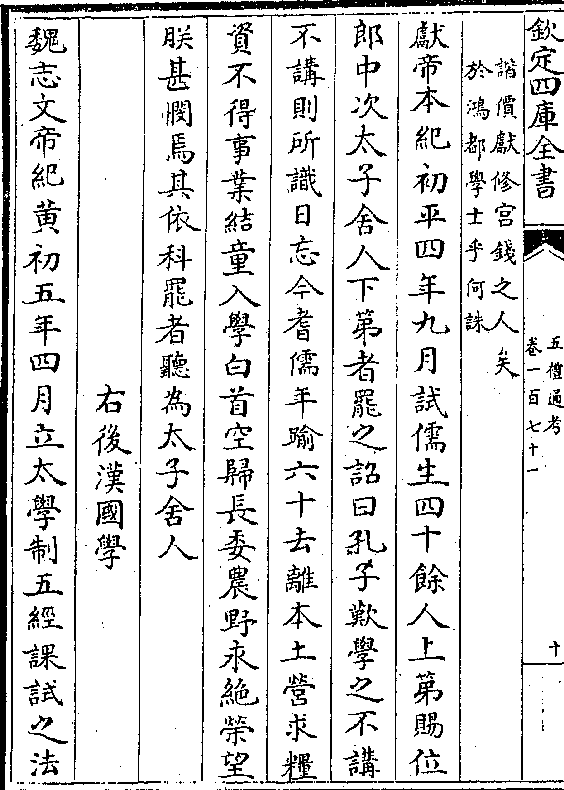 欽定四庫全書
五禮通考
卷一百七十一
十
諧價獻修宮錢之人矣
於鴻都學士乎何誅
獻帝本紀初平四年九月試儒生四十餘人上第賜位
郎中次太子舍人下第者罷之詔曰孔子歎學之不講
不講則所識日忘今耆儒年踰六十去離本土營求糧
資不得専業結童入學白首空歸長委農野永絶榮望
朕甚憫焉其依科罷者聽為太子舍人
右後漢國學
魏志文帝紀黄初五年四月立太學制五經課試之法